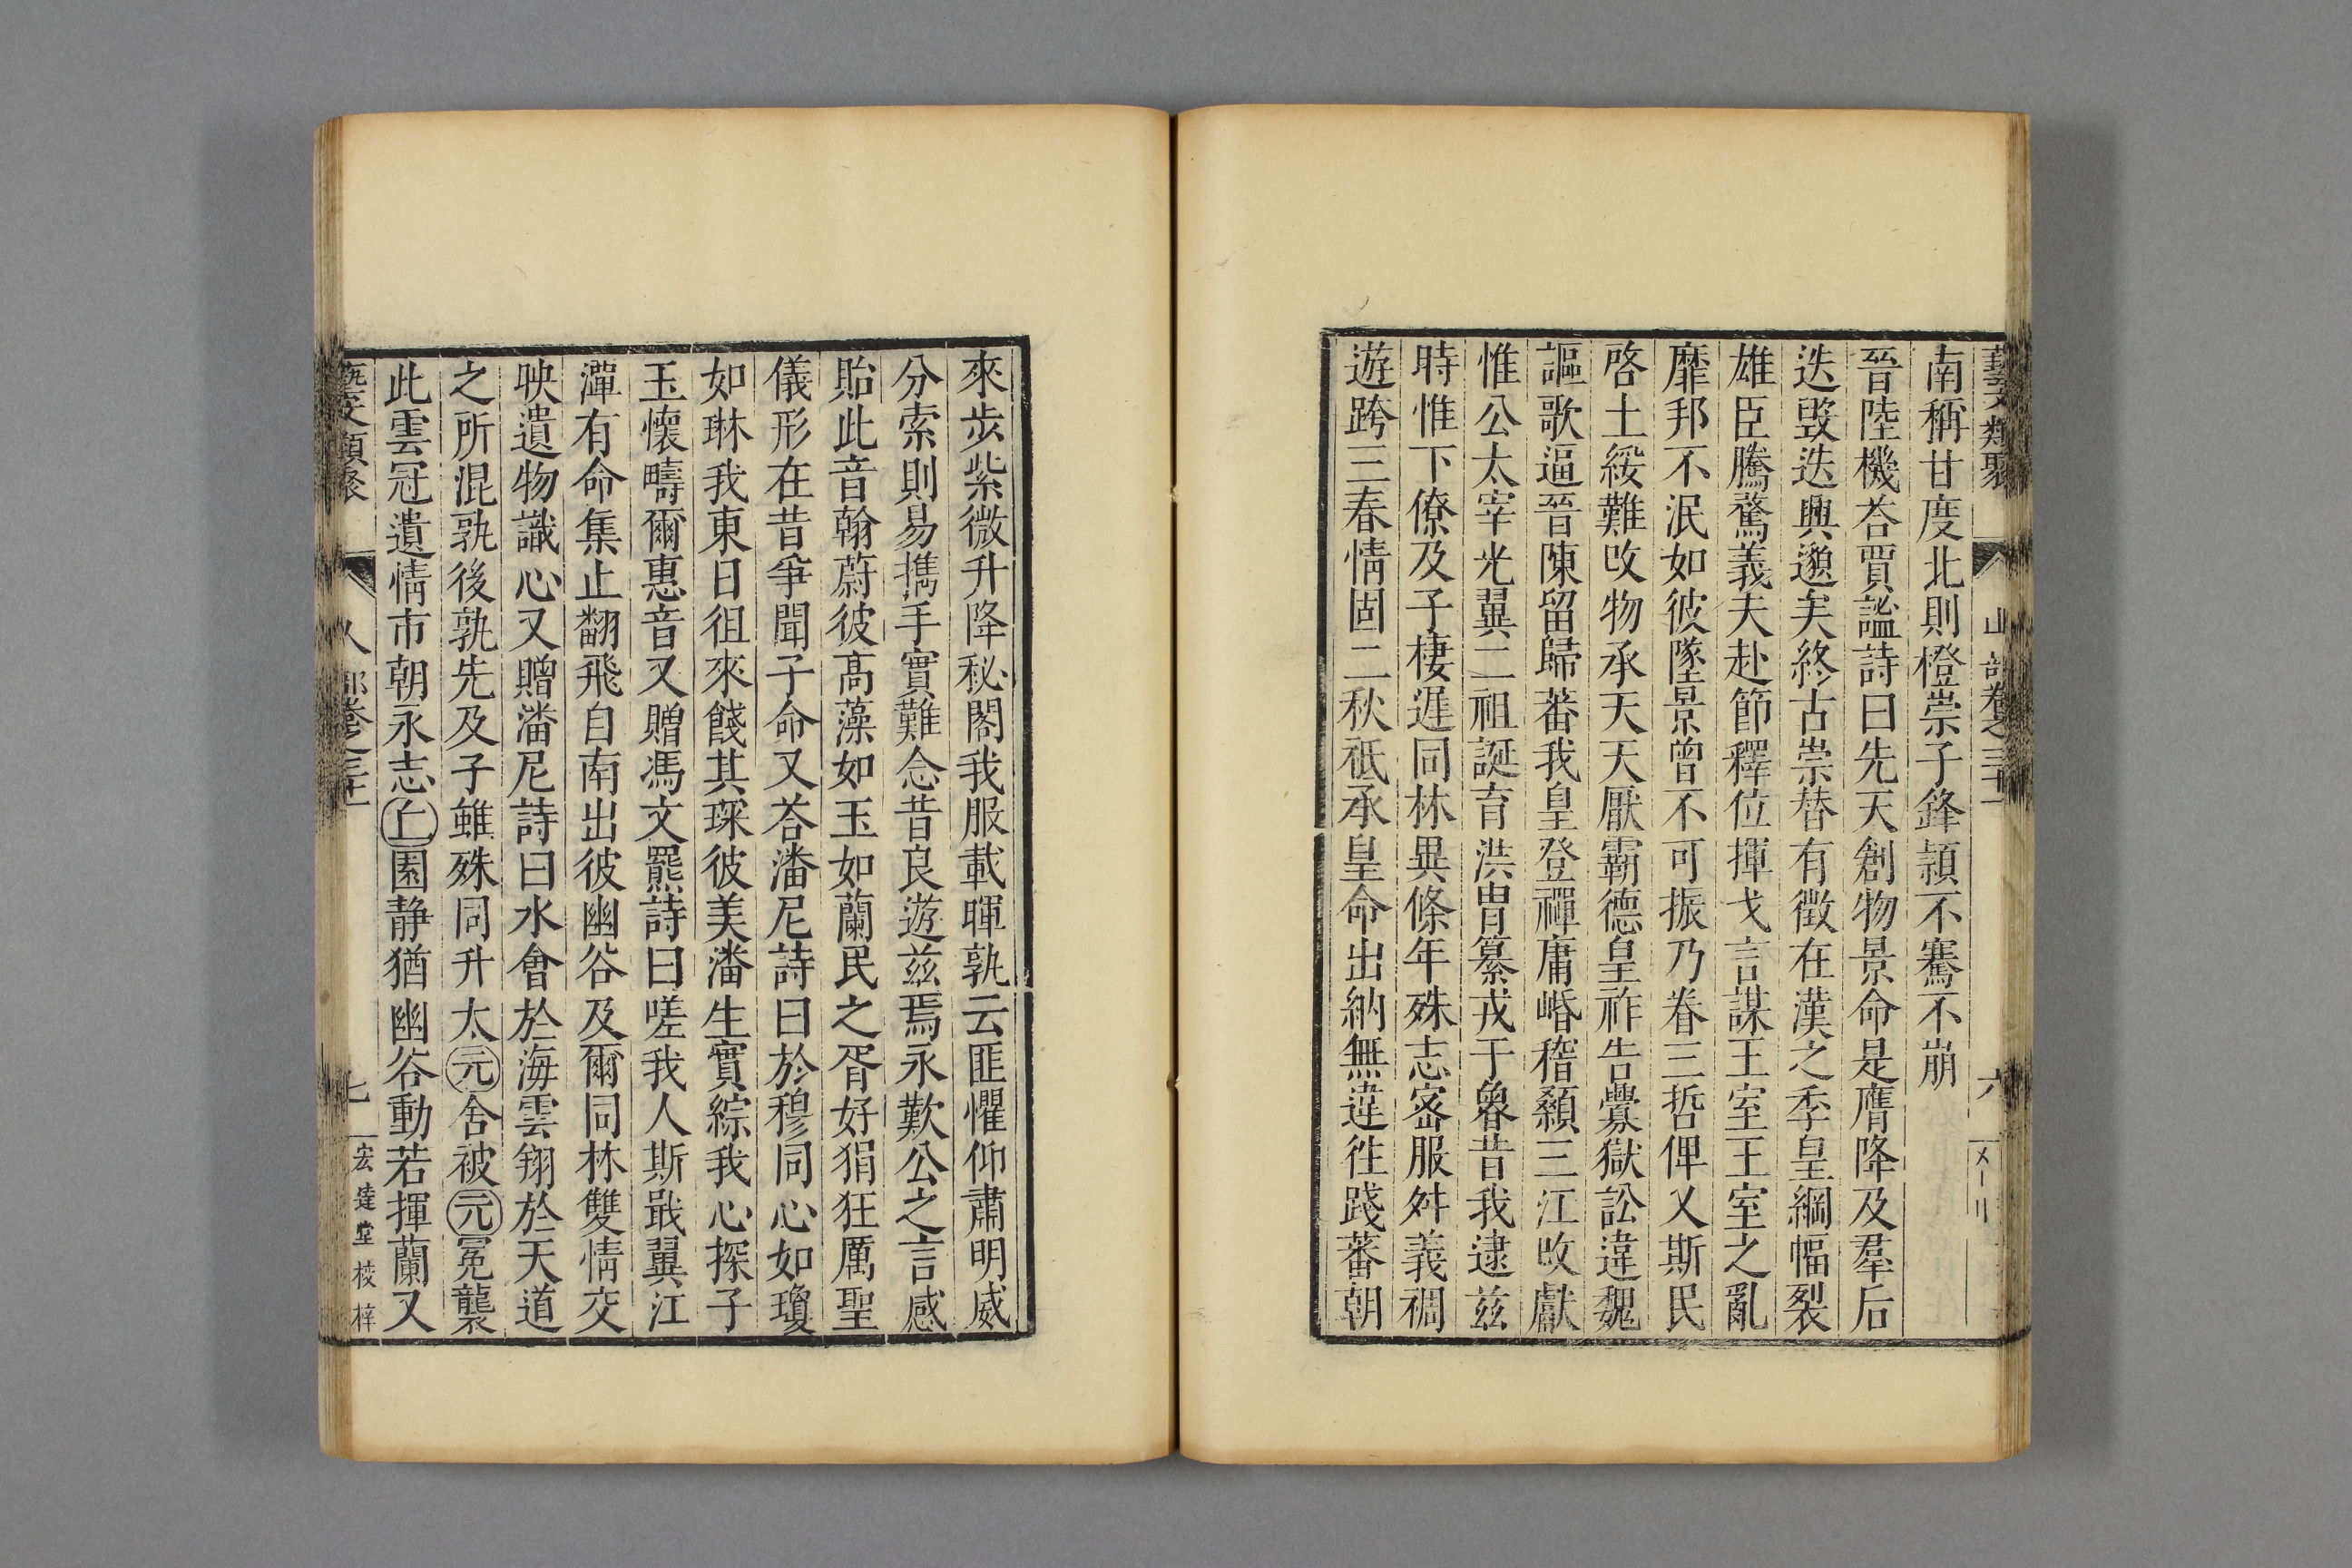 藝文類聚 卷之三十一 六
南稱甘度北則橙崇子鋒穎不騫不崩
晉陸機荅賈謐詩曰先天創物景命是膺降及羣后
迭毀迭興邈矣終古崇替有徵在漢之季皇綱幅裂
雄臣騰驁義夫赴節釋位揮戈言謀王室王室之亂
靡邦不泯如彼墜景曾不可振乃眷三哲俾乂斯民
啓土綏難改物承天天厭霸德皇祚告釁獄訟違魏
謳歌逼晉陳留歸蕃我皇登禪庸岷稽顙三江改獻
惟公太宰光翼二祖誕育洪胄纂戎于魯昔我逮兹
時惟下僚及子棲遲同林異條年殊志宻服舛義稠
遊跨三春情固二秋祇承皇命出納無違徃踐蕃朝
來步紫微升降秘閣我服載暉孰云匪懼仰肅明威
分索則易攜手實難念昔良遊兹焉永歎公之言感
貽此音翰蔚彼高藻如玉如蘭民之胥好狷狂厲聖
儀形在昔爭聞子命又荅潘尼詩曰於穆同心如瓊
如琳我東日徂來餞其琛彼美潘生實綜我心探子
玉懷疇爾惠音又贈馮文羆詩曰嗟我人斯戢翼江
潭有命集止翻飛自南出彼幽谷及爾同林雙情交
映遺物識心又贈潘尼詩曰水會於海雲翔於天道
之所混孰後孰先及子雖殊同升太元舍被元冕襲
此雲冠遺情市朝永志丘園静猶幽谷動若揮蘭又
藝文類聚 人部卷之三十一 七 宏達堂校梓